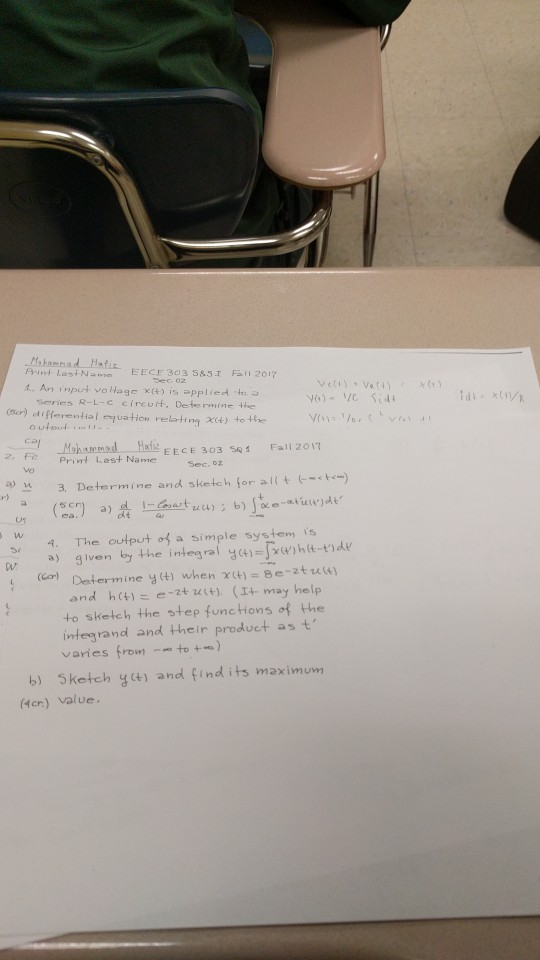 Mohammad Hafiz
Print Last Name EECE 303 S&S I Fall 2017
Sec. 02
1. An input voltage x(t) is applied to a
series R-L-C circuit. Determine the
(8cr) differential equation relating x(t) to the
Vc(t) + VR(t) = x(t)
y(t) = 1/C ∫idt
Mohammad Hafiz EECE 303 SQ1 Fall 2017
Print Last Name Sec. 02
3. Determine and sketch for all t (-∞<t<∞)
(5cr) ea. a) d/dt 1-cosωt/ω u(t); b) ∫_{-∞}^{t} αe-αt'u(t')dt'
4. The output of a simple system is
a) given by the integral y(t)=∫_{-∞}^{∞}x(t')h(t-t')dt'
(6cr) Determine y(t) when x(t) = 8e-2tu(t)
and h(t) = e-2tu(t). (It may help
to sketch the step functions of the
integrand and their product as t'
varies from -∞ to +∞)
b) Sketch y(t) and find its maximum
(4cr) value.